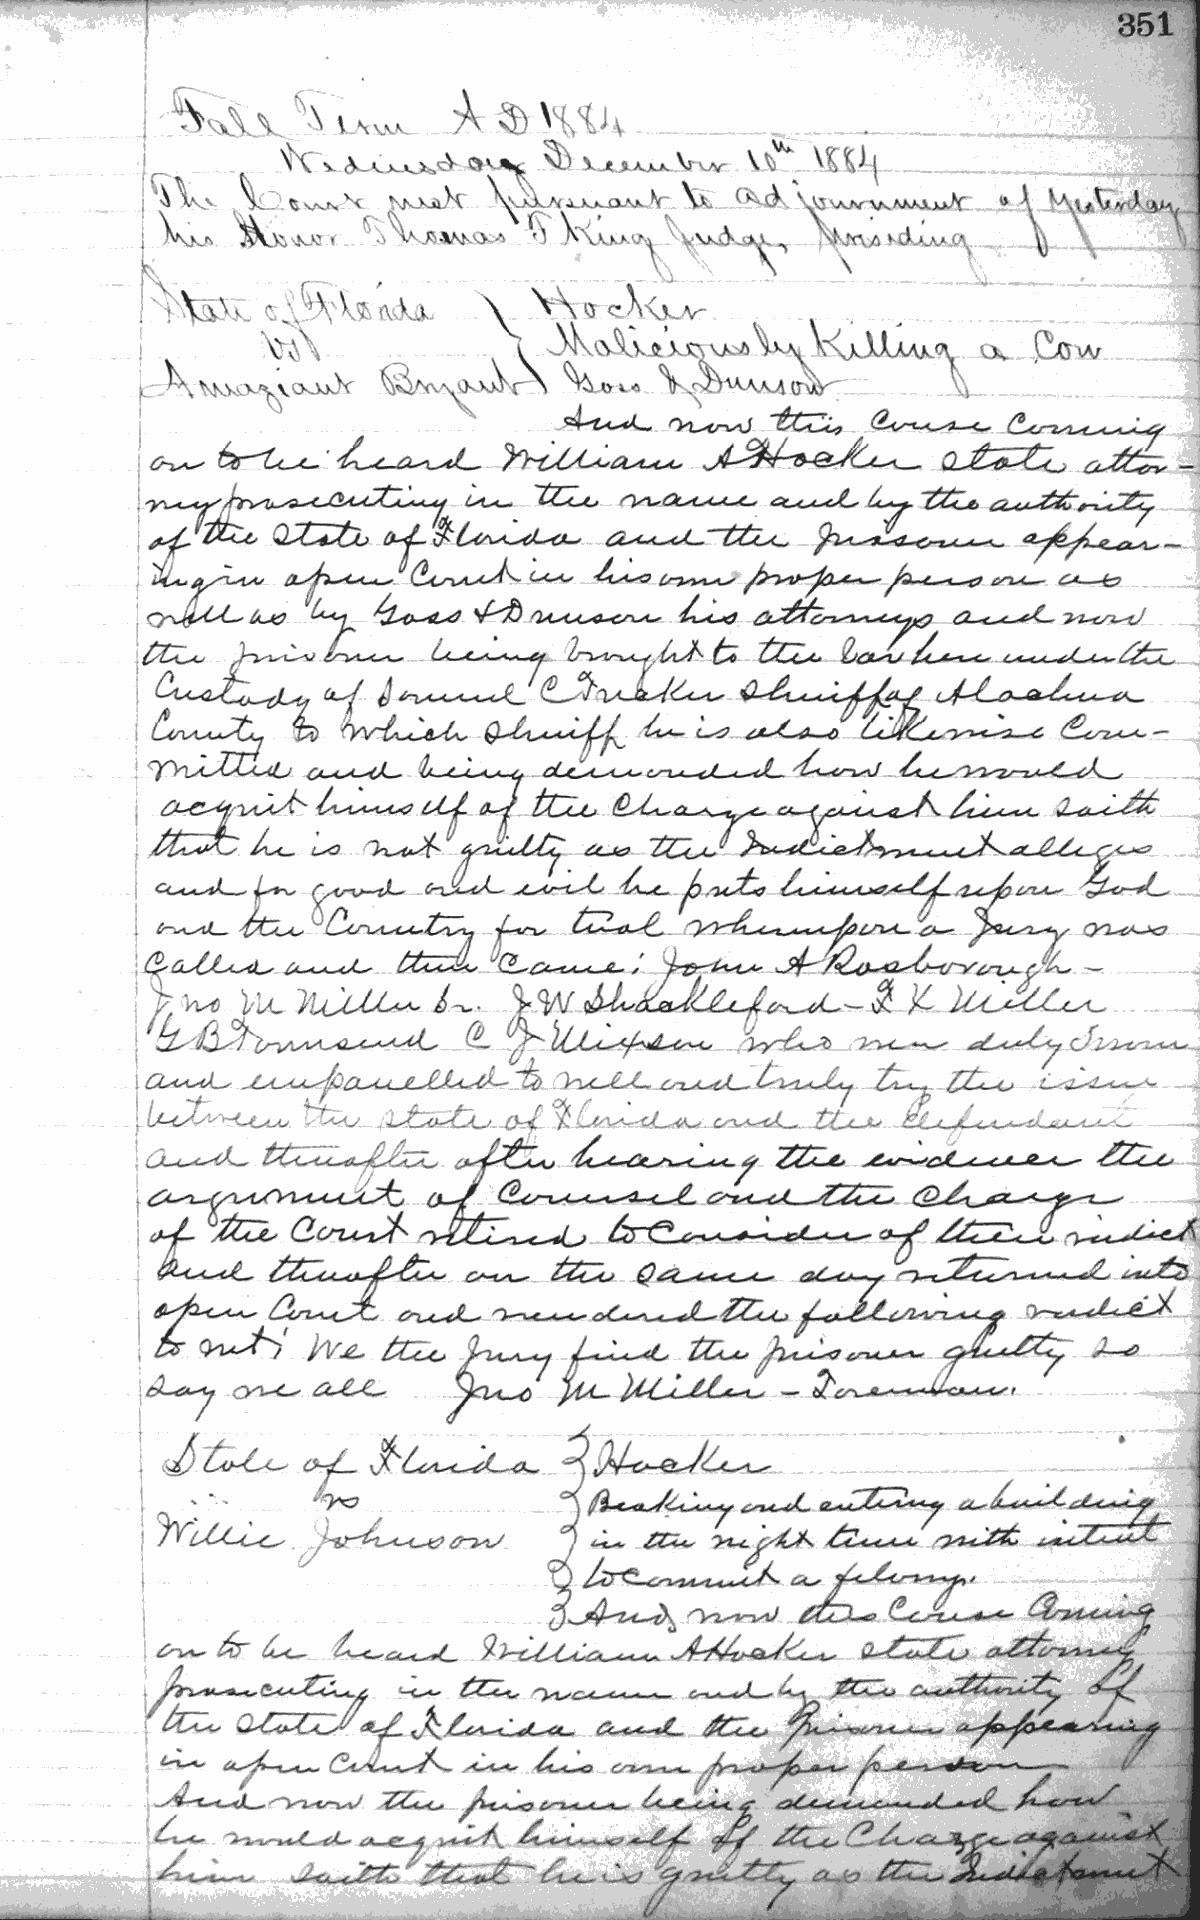 351
Fall Term A D 1884
Wednesday December 10th 1884
The Court met pursuant to adjournment of yesterday
his Honor Thomas F King Judge, presiding
State of Florida } Hocker
vs } Maliciously Killing a Cow
Amaziant Bryant } Goss & Dunson
And now this Cause Coming
on to be heard William A Hocker state attor-
ney prosecuting in the name and by the authority
of the State of Florida and the prisoner appear-
ing in open Court in his own proper person as
well as by Goss & Dunson his attorneys and now
the prisoner being brought to the bar here under the
Custody of Samuel C Tucker Sheriff of Alachua
County to which Sheriff he is also likewise Com-
mitted and being demanded how he would
acquit himself of the Charge against him saith
that he is not guilty as the Indictment alleges
and for good and evil he puts himself upon God
and the Country for trial whereupon a Jury was
Called and then Came: John A Rosborough -
Jno M Miller Sr. J W Shackleford - F X Miller
G B Townsend C J Mixson who were duly Sworn
and empanelled to well and truly try the issue
between the State of Florida and the defendant
and thereafter after hearing the evidence the
argument of Counsel and the Charge
of the Court retired to Consider of their verdict
and thereafter on the same day returned into
open Court and rendered the following verdict
to wit: We the Jury find the prisoner guilty so
say we all Jno M Miller - Foreman.
State of Florida } Hocker
vs } Breaking and entering a building
Willie Johnson } in the night time with intent
} to Commit a felony.
} And, now this Cause Coming
on to be heard William A Hocker state attorney
prosecuting in the name and by the authority of
the State of Florida and the Prisoner appearing
in open Court in his own proper person
And now the prisoner being demanded how
he would acquit himself of the Charge against
him saith that he is guilty as the Indictment